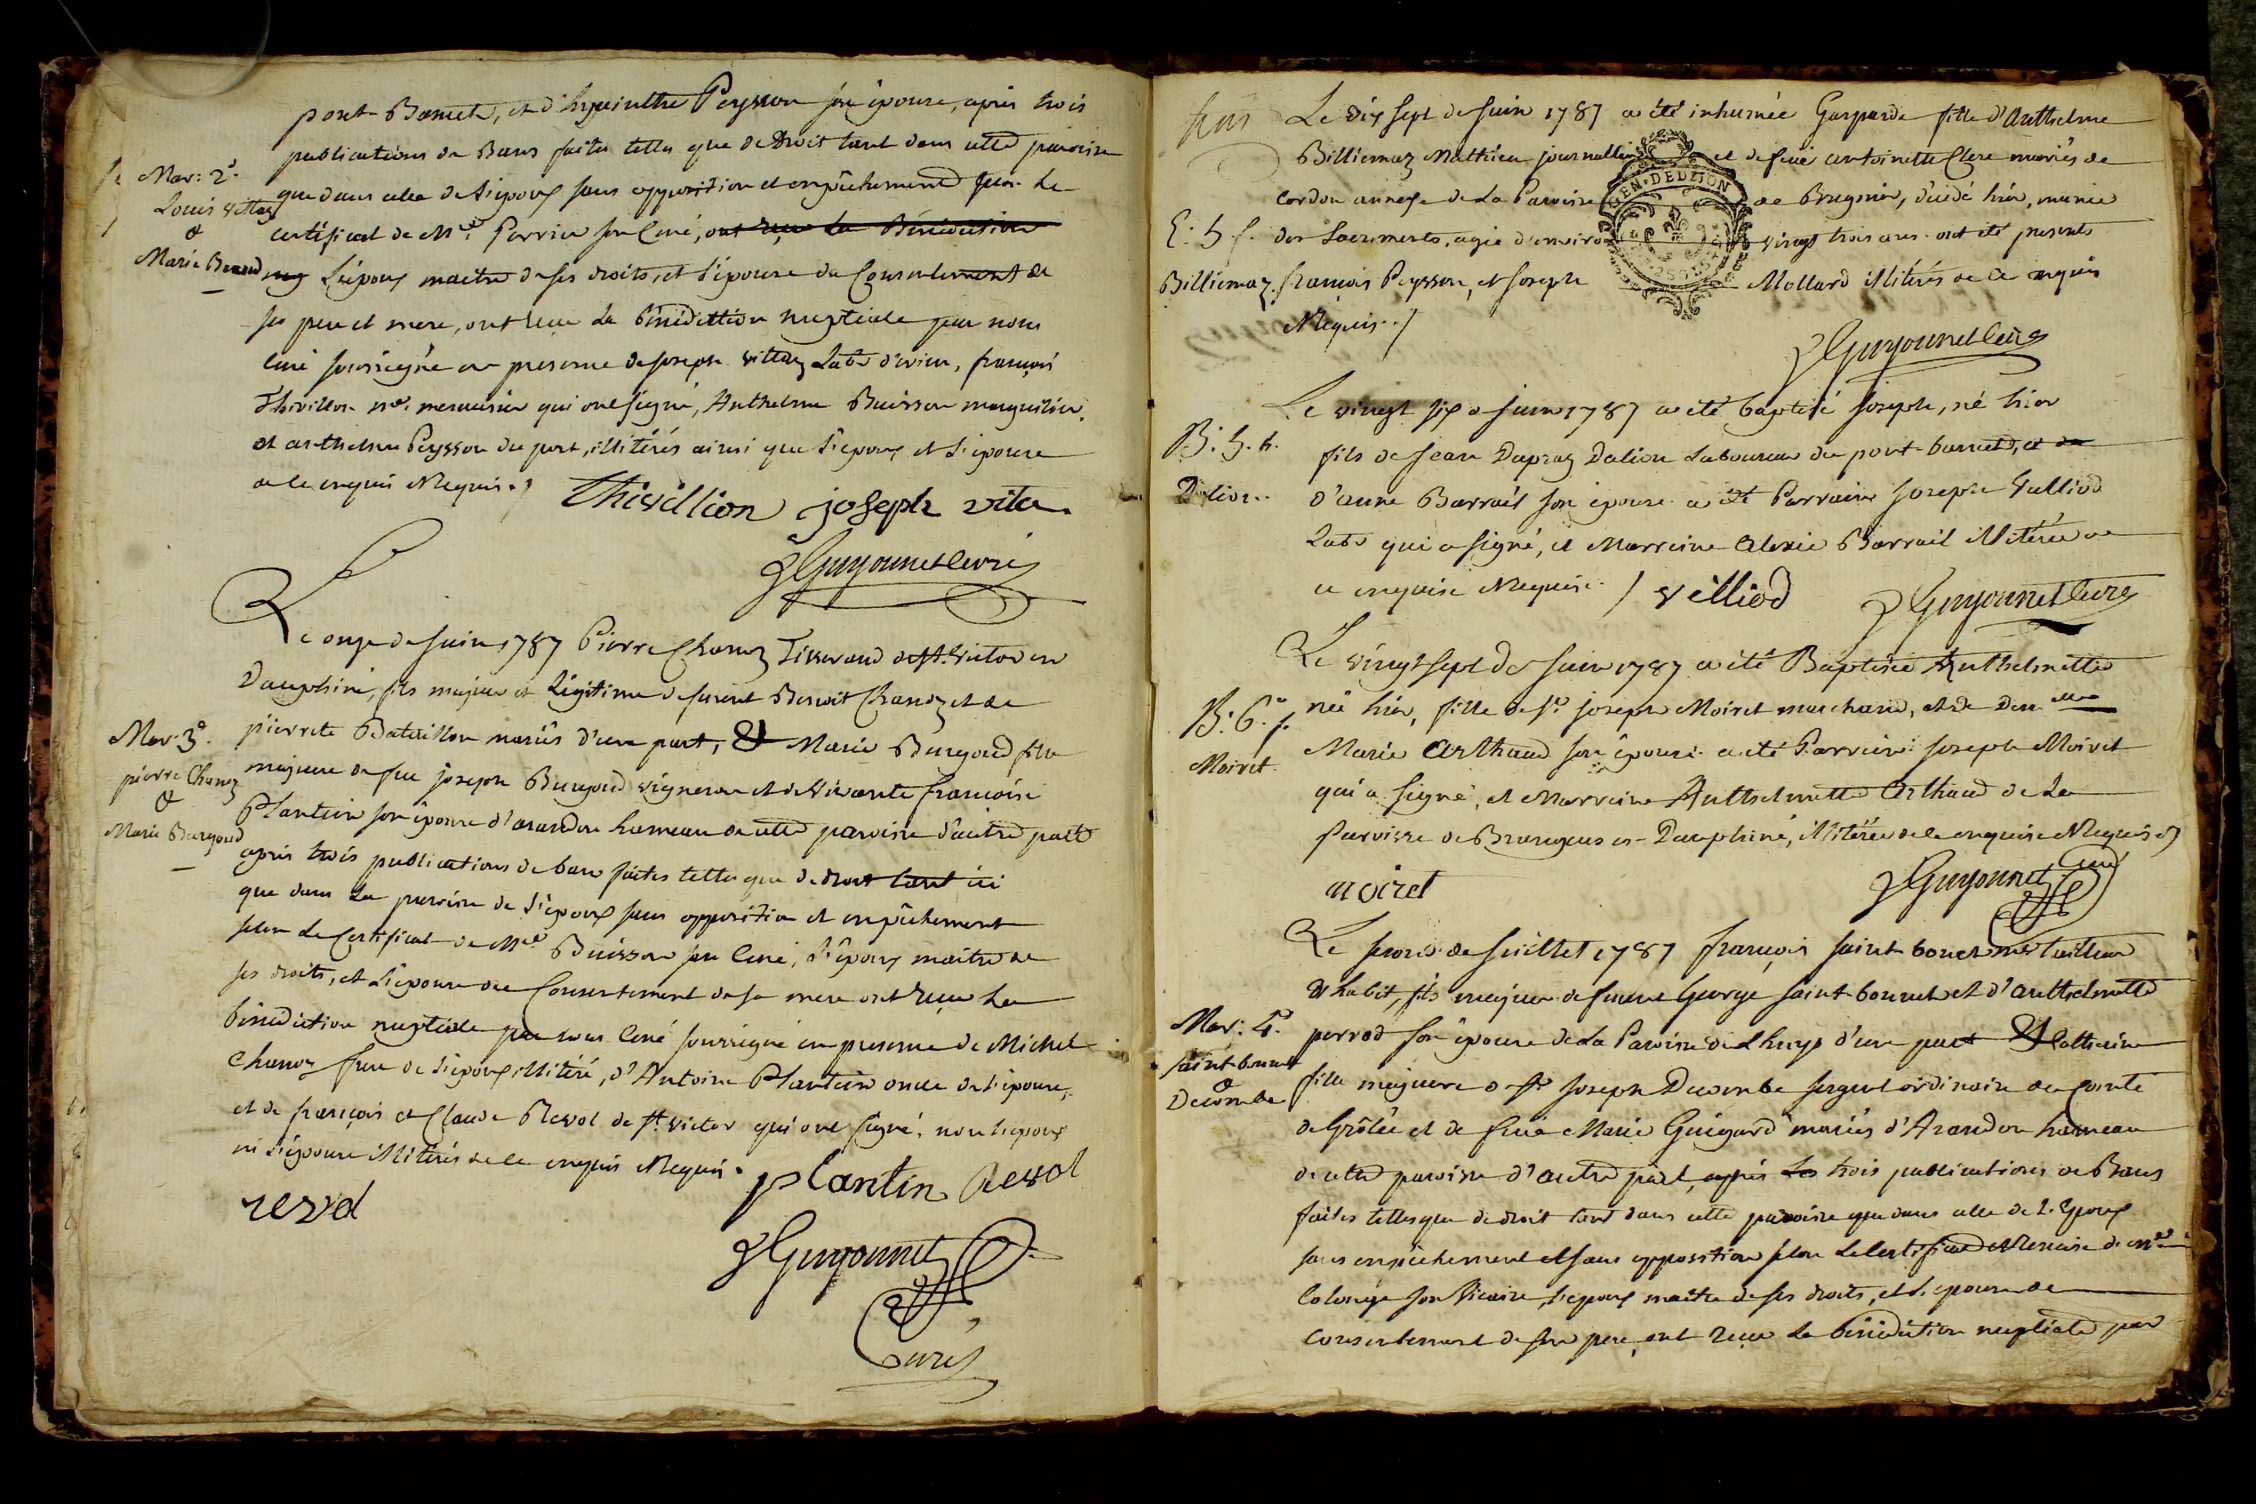 pont Bancet, et d'hyacinthe Peysson son épouse, apres trois
publications de Bans faites telles que de Droit tant dans cette paroisse
Mar: 2e.
que dans celle de l'epoux sans opposition et empêchement selon le
Louis vettaz
&
certificat de Mre. Perrier son Curé, ont reçu la Bénédiction
Marie Benard
L'époux maitre de ses droits, et l'épouse du Consentement de
ses pere et mere, ont reçue la bénédiction nuptiale par nous
Curé soussigné en presence de joseph vittaz Labr d'evieu, françois
Thivillon me. menuisier qui ont signé, Anthelme Buisson marguillier
et anthelme Peysson du port, illitérés ainsi que l'epoux et l'epouse
de ce enquis & Requis ./
Thivillion joseph vita
Guyonnet curé
Le onze de juin 1787 Pierre Chanoz Tisserand de St. victor en
Dauphiné, fils majeur et légitime de furent Benoit Chanoz et de
Mar: 3e.
pierrete Bataillon mariés d'une part, & Marie Burgoud fille
pierre Chanoz
&
Marie Burgoud
majeure de feu joseph Burgoud vigneron et de vivante françoise
Plantin son épouse d'arandon hameau de cette paroisse d'autre part
après trois publications de bans faites telles que de droit tant ici
que dans la paroisse de l'époux sans opposition et empêchement
selon le Certificat de Mre. Buisson son Curé, l'époux maitre de
ses droits, et l'épouse du Consentement de sa mere ont reçue la
bénédiction nuptiale par nous Curé soussigné en presence de Michel
Chanoz frere de l'époux illitéré, d'Antoine Plantin oncle de l'épouse,
et de françois et Claude Revol de St. victor qui ont signé, non l'epoux
ni l'épouse illitérés de ce enquis & Requis.
plantin Revol
revol
Guyonnet
Curé
Le dix sept de juin 1787 a été inhumée Gasparde fille d'Anthelme
Billiemaz Mathieu journallier et de feue antoinette Clere mariés de
GEN. DE DIJON
Cordon annexe de la Paroisse de Bregnier, décédé hier, munie
E: 5 f.
des Sacrements, agée d'environ vingt trois ans. ont été presents
Billiemaz.
françois Peysson, et joseph Mollard illitérés de ce enquis
& Requis ./
Guyonnet Curé
Le vingt six de juin 1787 a été baptisé joseph, né hier
B: 5. h.
fils de jean Dupraz Dalion Laboureur du pont-bancet, et de
Dalion.
d'anne Barrail son épouse. a été Parrain joseph Valliod
Labr qui a signé, et Marraine Barrail illitérée de
ce enquise & Requise. /
velliod
Guyonnet Curé
Le vingt sept de juin 1787 a été Baptisée Anthelmette
B: 6e. f.
née hier, fille de Sr. joseph Moiret marchand, et de Dem.lle
Moiret.
Marie Arthaud son épouse. a été Parrain joseph Moiret
qui a signé, et Marraine Anthelmette Arthaud de la
Paroisse de Brangues en Dauphiné, illitérée de ce enquise & Requise ./
moiret
Guyonnet Curé
Le second de juillet 1787 françois saint-bonet me tailleur
d'habit, fils majeur de furent George saint-bonnet et d'anthelmette
Mar: 4e.
perrod son épouse de la Paroisse de Lhuys d'une part & Catherine
saint-bonnet
&
Decombe
fille majeure de Sr. joseph Decombe sergent ordinaire du Comté
de Grôlée et de feue Marie Guigard mariés d'Arandon hameau
de cette paroisse d'autre part, après les trois publications de Bans
faites telles que de droit tant dans cette paroisse que dans celle de l'Epoux
sans empêchement et sans opposition selon le Certificat & Remise de Mre.
Colonge son Vicaire, l'epoux maitre de ses droits, et l'epouse de
Consentement de son pere, ont reçue la bénédiction nuptiale par